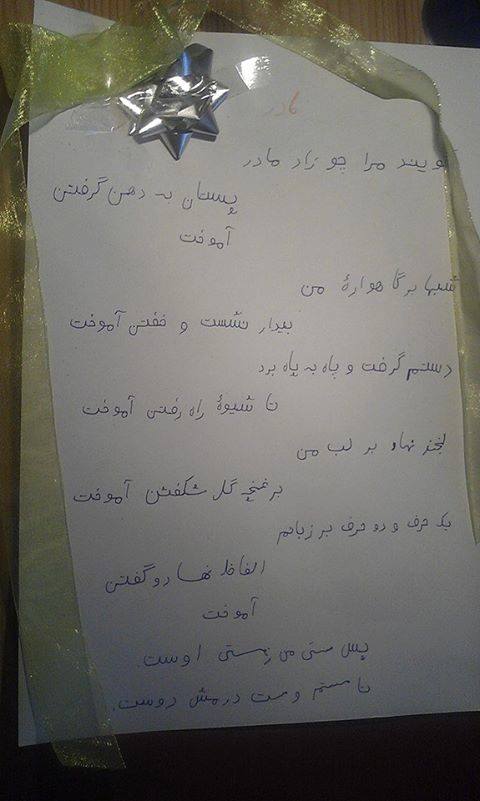 مادر
گویند مرا چو زاد مادر
پستان به دهن گرفتن
آموخت
شبها بر گاهوارهٔ من
بیدار نشست و خفتن آموخت
دستم گرفت و پاه به پاه برد
تا شیوهٔ راه رفتن آموخت
لبخنز نهاد بر لب من
بر غنچه گل شکفتن آموخت
یک حرف و دو حرف بر زبانم
الفاظ نهاد و گفتن
آموخت
پس هستی من ز هستی اوست
تا هستم و هست دارمش دوست.